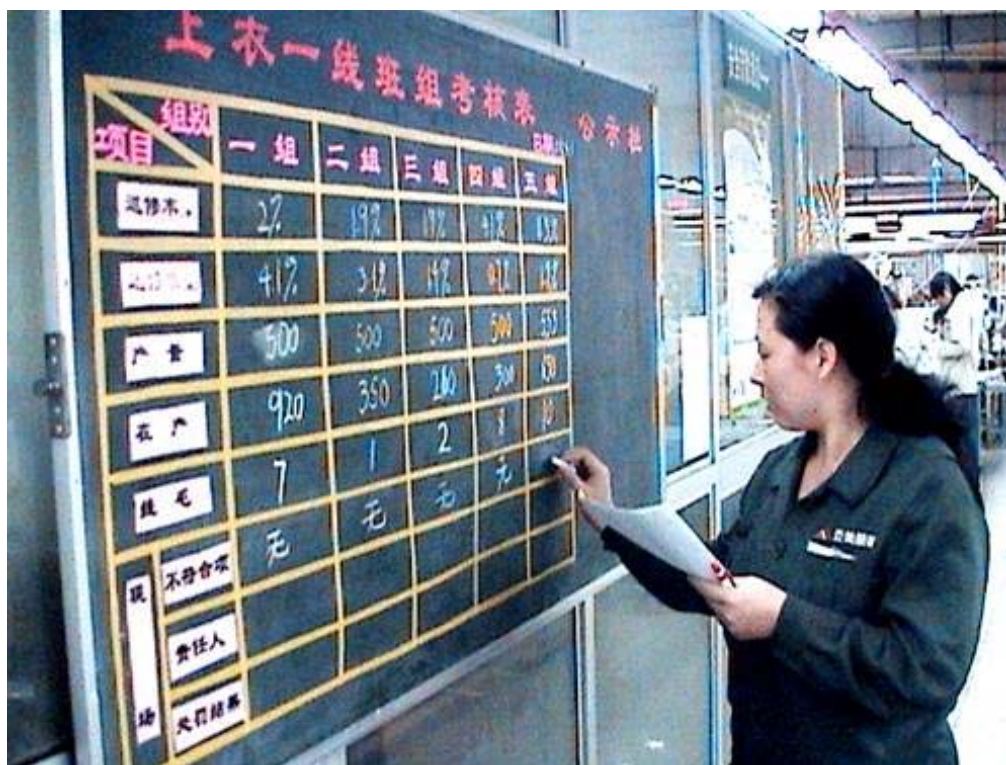 上衣一线班组考核表 公示栏
组别
项目
一组 二组 三组 四组 五组
返修率 2% 19% 19%
41% 31% 19%
产量 500 500 500 500 550
在产 920 350 260 300
线毛 7 1 2 8 10
现场
不符合项 无 无 无 无
责任人
处罚结果